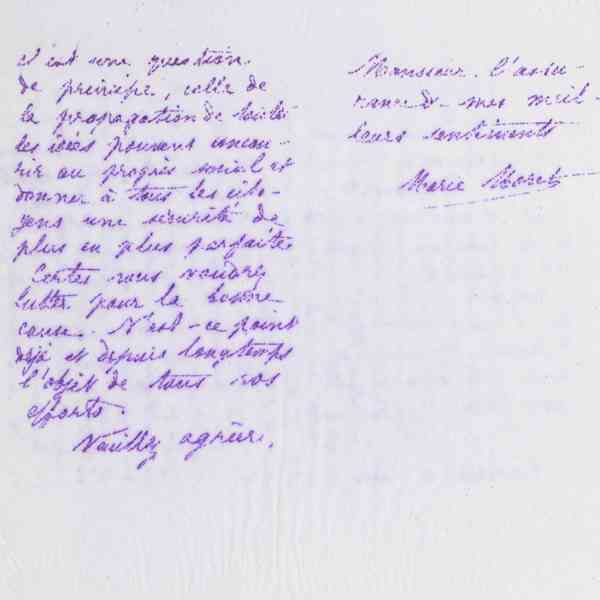 il est une question
de principe, celle de
la propagation de toutes
les idées pouvant concou-
rir au progrès social et
donner à tous les cito-
yens une sécurité de
plus en plus parfaite.
Certes vous voudrez
lutter pour la bonne
cause. N'est-ce point
déjà et depuis longtemps
l'objet de tous vos
efforts.
Veuillez agréer,
Monsieur, l'assu-
rance de mes meil-
leurs sentiments
Marie Moret